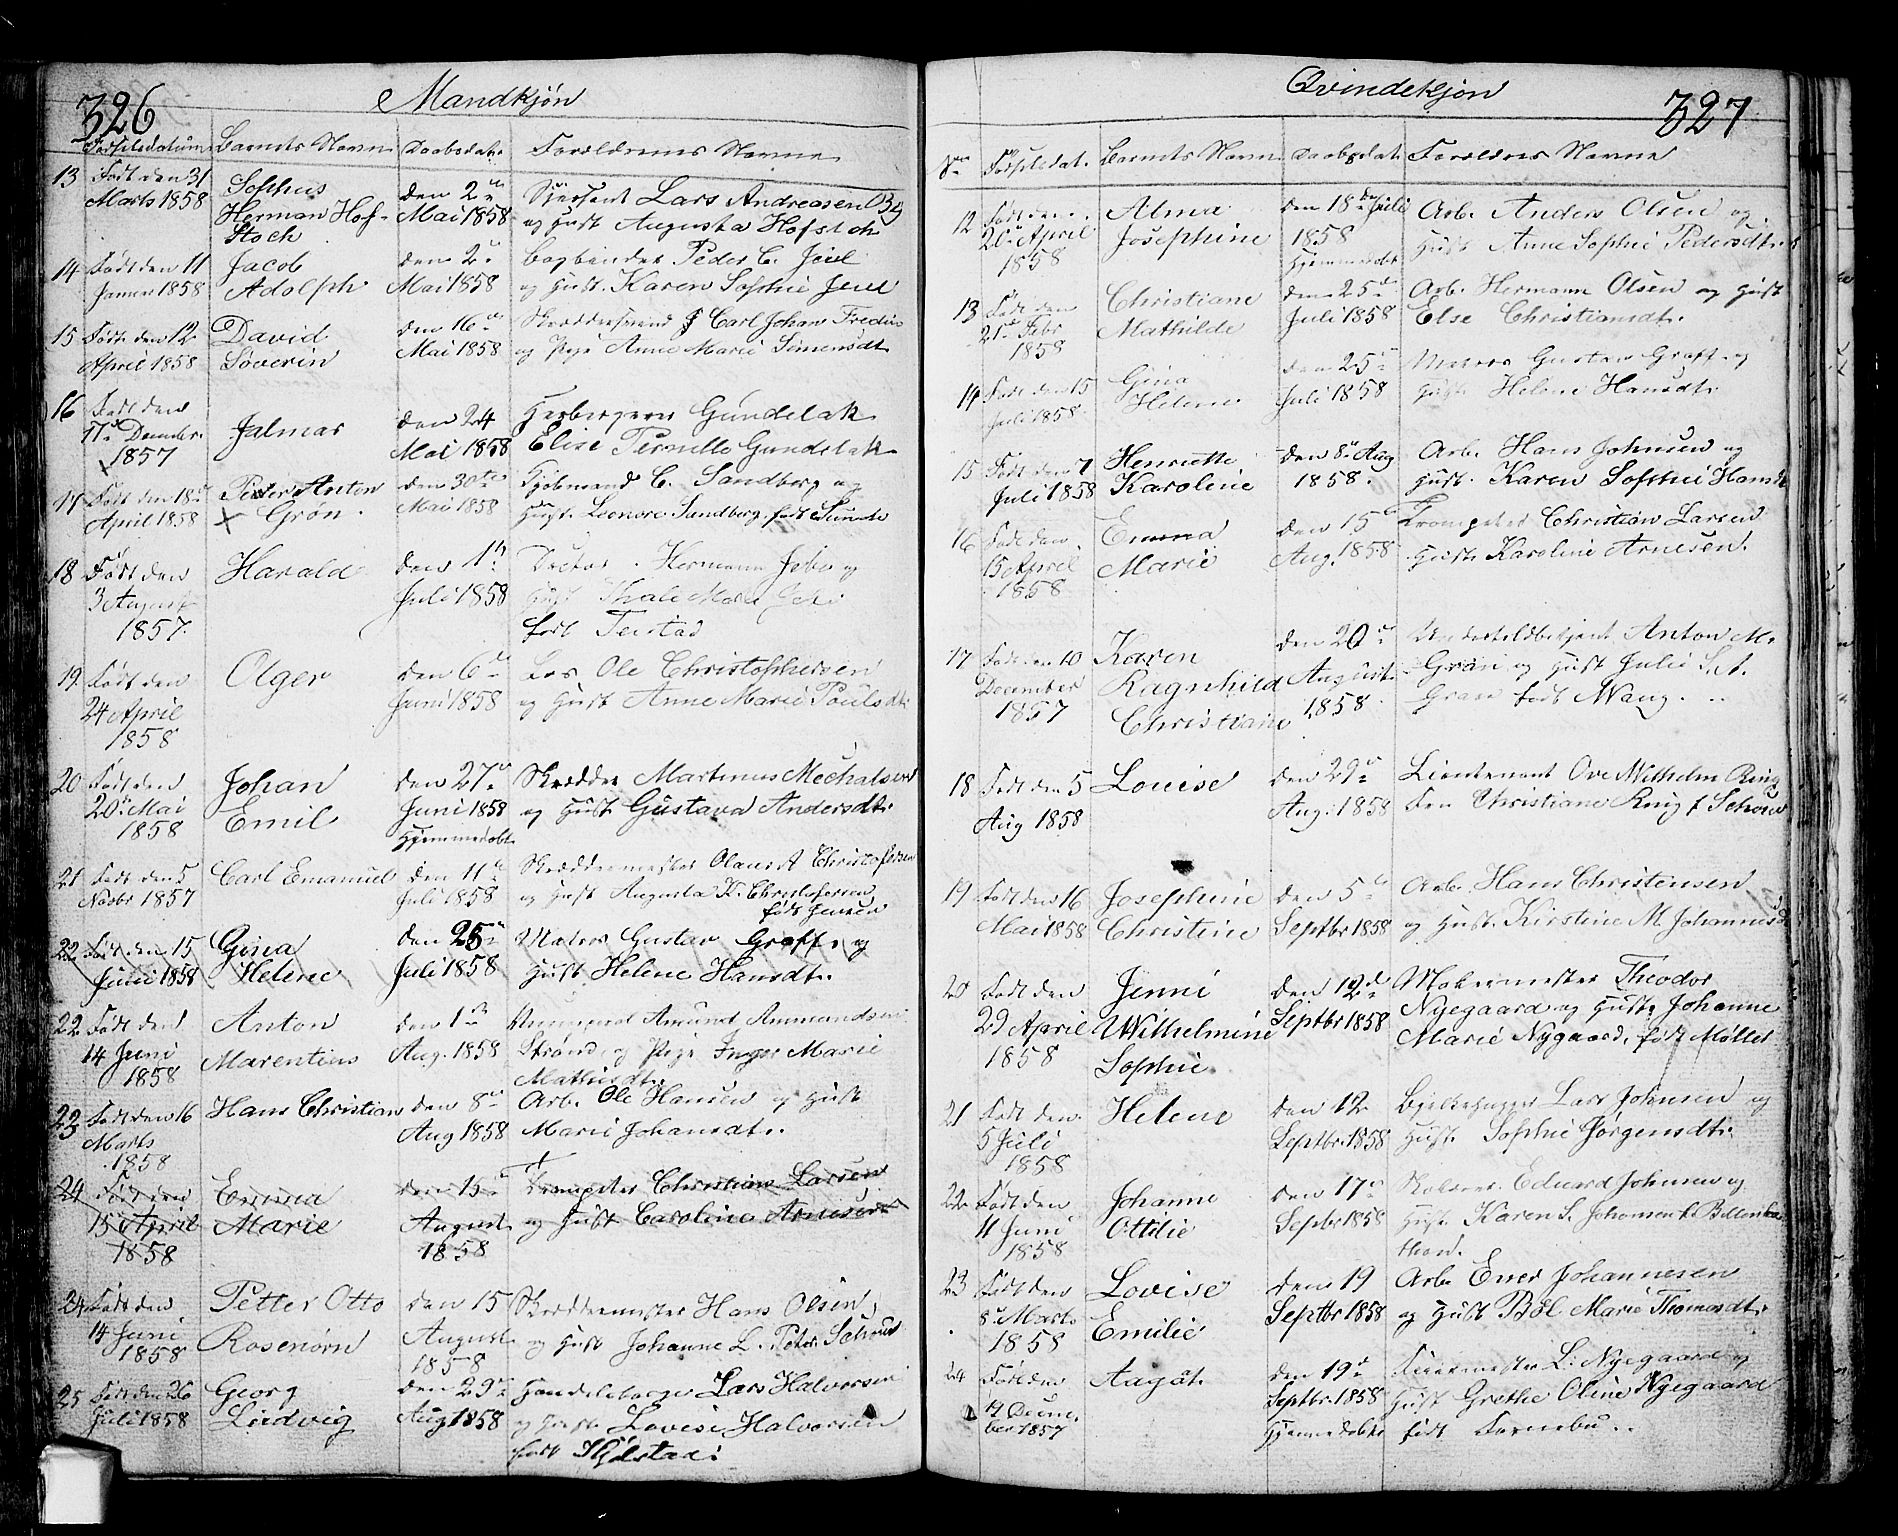 326
Mandkjøn
Fødselsdatum Barnets Navn Daabsdat. Forældrenes Navne
13 Født den 31 Marts 1858 Sophus Herman Hofstock den 2 Mai 1858 Sjersent Lars Andreasen og Hust Augusta Hofstok
14 Født den 11 Januar 1858 Jacob Adolph den 2 Mai 1858 Bogbinder Peder C. Jeul og Hust. Karen Sophie Jeul
15 Født den 12 April 1858 David Severin den 16 Mai 1858 Skreddersvend Carl Johan og Pige Anne Marie Simensdt.
16 Født den 17 December 1857 Jalmar den 24 Mai 1858 Gundelak Elise Pernelle Gundelak
17 Født den 18 April 1858 Peder Anton Grøn. den 30te Mai 1858 Kjøbmand C. Sandberg og Hust. Leonore Sandberg. født
18 Født den 3 August 1857. Harald den 1 Juli 1858 Doctor Hermann og Hust Thale født
19 Født den 24 April 1858 Olger den 6 Juni 1858 Ole Christophersen og Hust Anne Marie Poulsdt.
20 Født den 20 Mai 1858 Johan Emil den 27 Juni 1858 Hjemmedøbt Skredder Martinus og Hust Gustava Andersdt.
21 Født den 5 Novbr 1857 Carl Emanuel den 11 Juli 1858 Skreddermester Olaus A Christofersen og Hust Augusta K. Christofersen født Jensen
22 Født den 15 Juni 1858 Gina Helene den 25 Juli 1858 Matros Gustav Graff. og Hust Helene Hansdt.
22 Født den 14 Juni 1858 Anton Marentius den 1 Aug. 1858 Amund Ammundsen Pige Inger Marie Mathisdt.
23 Født den 16 Marts 1858 Hans Christian den 8 Aug 1858 Arb. Ole Hansen og Hust Marie Johansdt.
24 Født den 15 April 1858 Emma Marie den 15 August 1858 Trompeter Christian Larsen og Hust Caroline Arnesen
24 Født den 14 Juni 1858 Petter Otto Rosenørn den 15 August 1858 Skreddermester Hans Olsen og Hust Johanne L.
25 Født den 26 Juli 1858 Georg Ludvig den 29 Aug 1858 Lars Halvorsen og Hust Lovise Halvorsen født
Qvindekjøn
327
No Fødselsdat. Barnets Navn Daabsdat Forældres Navne
12 Født den 20 April 1858 Alma Josephine den 18 Juli 1858 Hjemmedøbt Arb. Anders Olsen og Hust Anne Sophie Pedersdt.
13 Født den 21 Febr 1858 Christiane Mathilde den 25 Juli 1858 Arb. Hermann Olsen og Hust Else Christiansdt.
14 Født den 15 Juli 1858 Gina Helene den 25 Juli 1858 Matros Gustav Graff. og Hust Helene Hansdt.
15 Født den 7 Juli 1858 Henriette Karoline den 8 Aug 1858. Arb. Hans Johnsen og Hust. Karen Sophie Hansdt
16 Født den 15 April 1858 Emma Marie den 15 Aug. 1858 Trompeter Christian Larsen Hust Karoline Arnesen.
17 Født den 10 December 1857 Karen Ragnhild Christiane den 20 August 1858. Undertoldbetjent Anton M. og Hust Julie født Wang.
18 Født den 5 Aug 1858 Louise den 29 Aug. 1858 Lieutenant Ove Wilhelm Ring Christiane Ring f
19 Født den 16 Mai 1858 Josephine Christine den 5 Septbr 1858 Arb. Hans Christensen og Hust. Kirstine M. Johannesd
20 Født den 29 April 1858 Jenni Wilhelmine Sophie. den 12 Septbr 1858 Theodor Nyegaard og Hust. Johanne Marie Nygaard, født Møller
21 Født den 5 Juli 1858 Helene den 12 Septbr. 1858 Lars Johnsen og Hust. Sophie Jørgensdt.
22 Født den 4 Juni 1858 Johanne Ottilie den 17 Septbr 1858 Eduard Johnsen og Hust. Karen S. Johansen f.
23 Født den 8 Marts 1858 Lovise Emilie den 19 Septbr 1858 Arb. Johannesen og Hust Marie Thomasdt.
24 Født den December 1857 Aagot. den 19 Septbr 1858 Hjemmedøbte L. Nyegaard og Hust Grethe Oline Nyegaard født